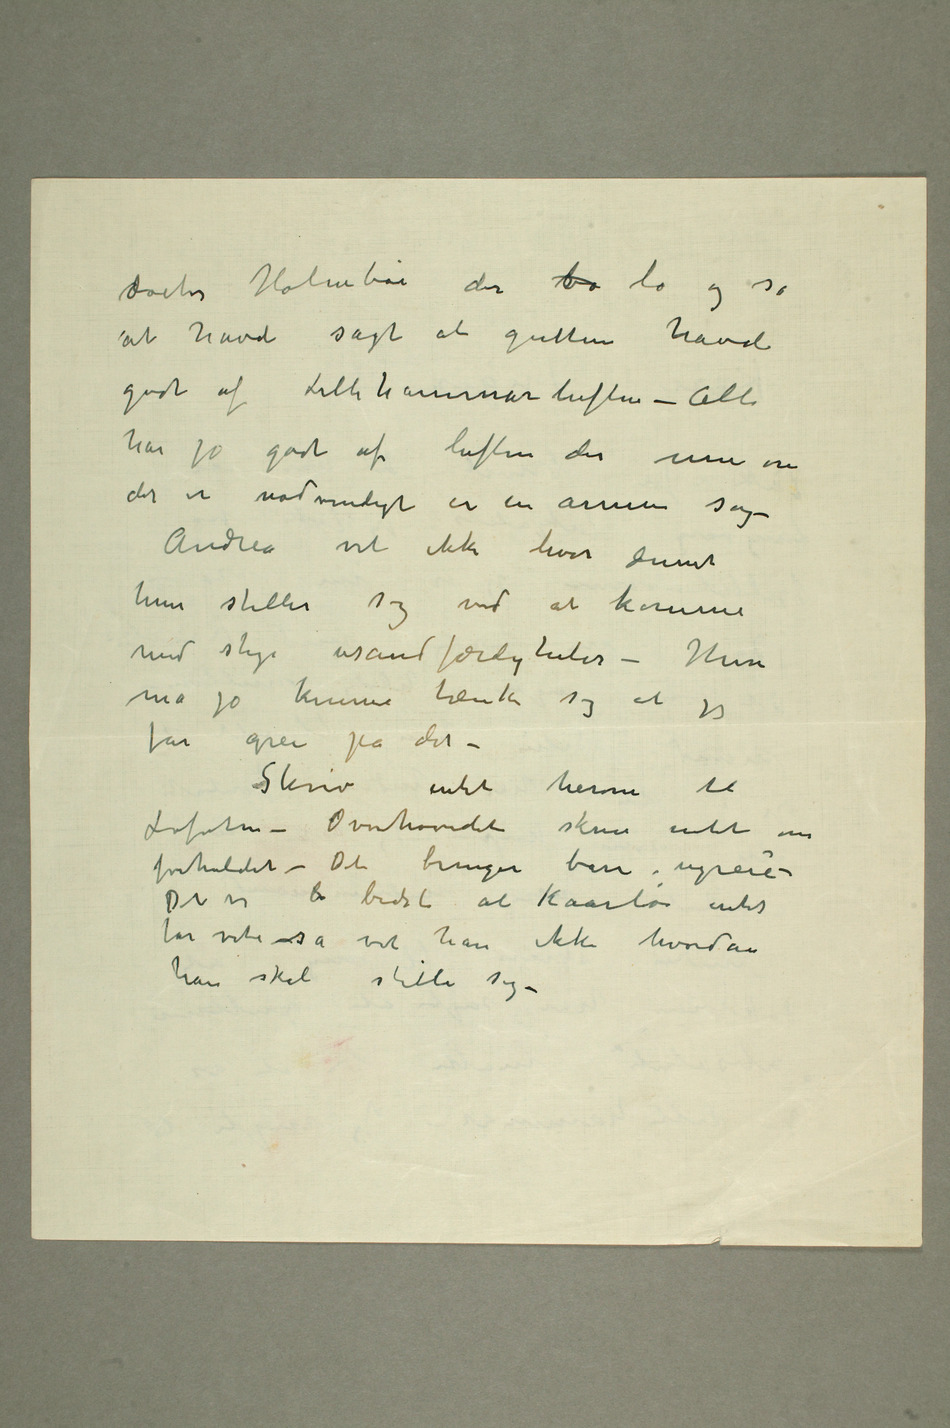 Doctor Holmboe der <del>bo</del> lo og sa
at havd sagt at gutten havd
godt af Lillehammerluften – Alle
har jo godt af luften der men om
det er nødvendigt er en annen sag –
Andrea vet ikke hvor dumt
hun stiller sig ved at komme
med slige usandfærdigheter – Hun
må jo kunne tænke sig at jeg
får greie på det –
Skriv intet herom til
Lofoten – Overhovedet skriv intet om
forholdet – Det bringer bare ugreie –
Det er b bedst at Kaarbø intet
får vite – så vet han ikke hvordan
han skal stille sig –